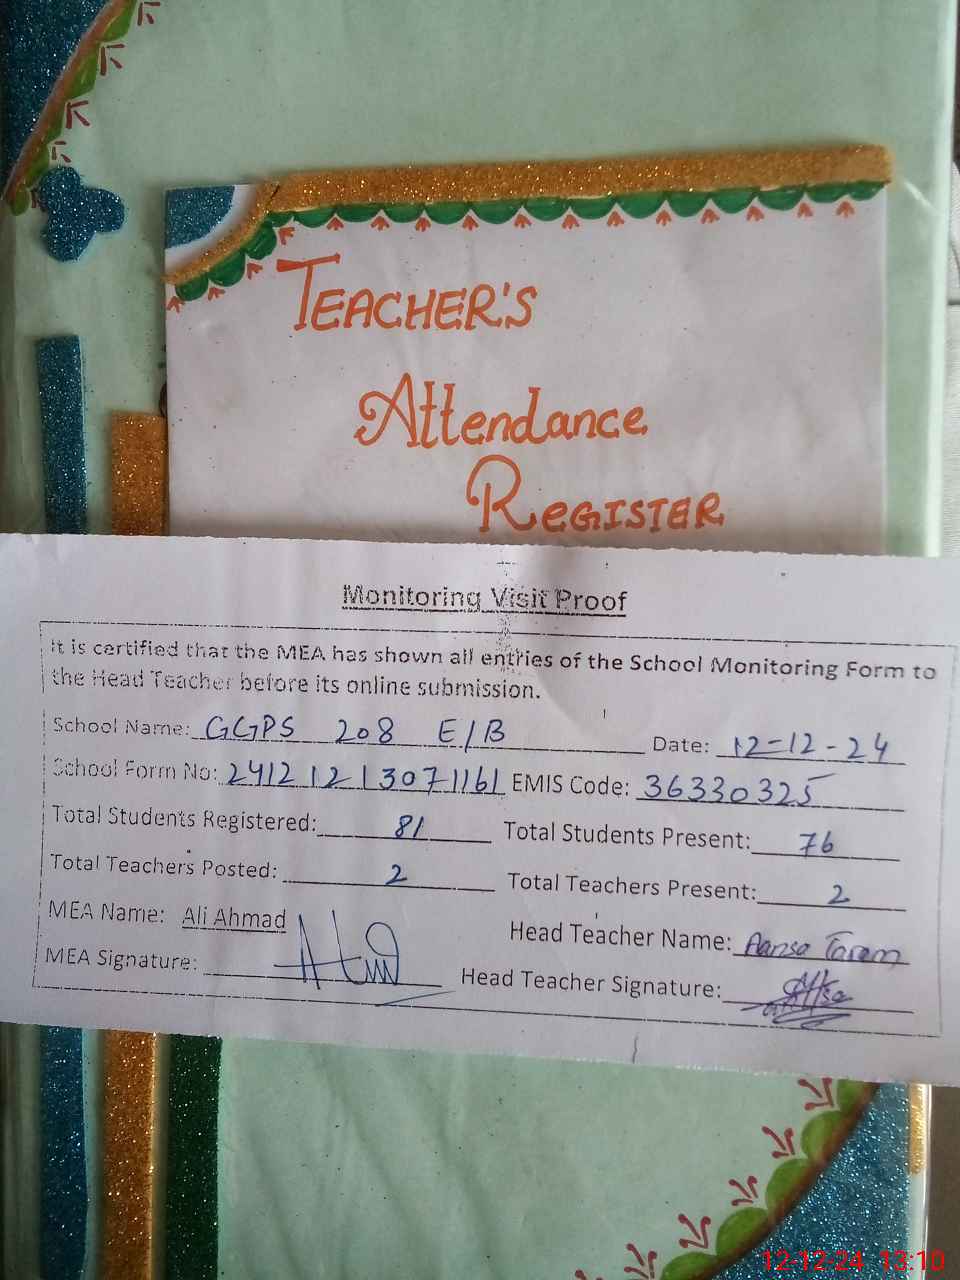 TEACHER'S
Attendance
REGISTER
Monitoring Visit Proof
It is certified that the MEA has shown all entries of the School Monitoring Form to
the Head Teacher before its online submission.
School Name: GGPS 208 E/B Date: 12-12-24
School Form No: 2412 12 13071161 EMIS Code: 36330325
Total Students Registered: 81 Total Students Present: 76
Total Teachers Posted: 2 Total Teachers Present: 2
MEA Name: Ali Ahmad Head Teacher Name: Aansa
MEA Signature: Head Teacher Signature:
12-12-24 13:10